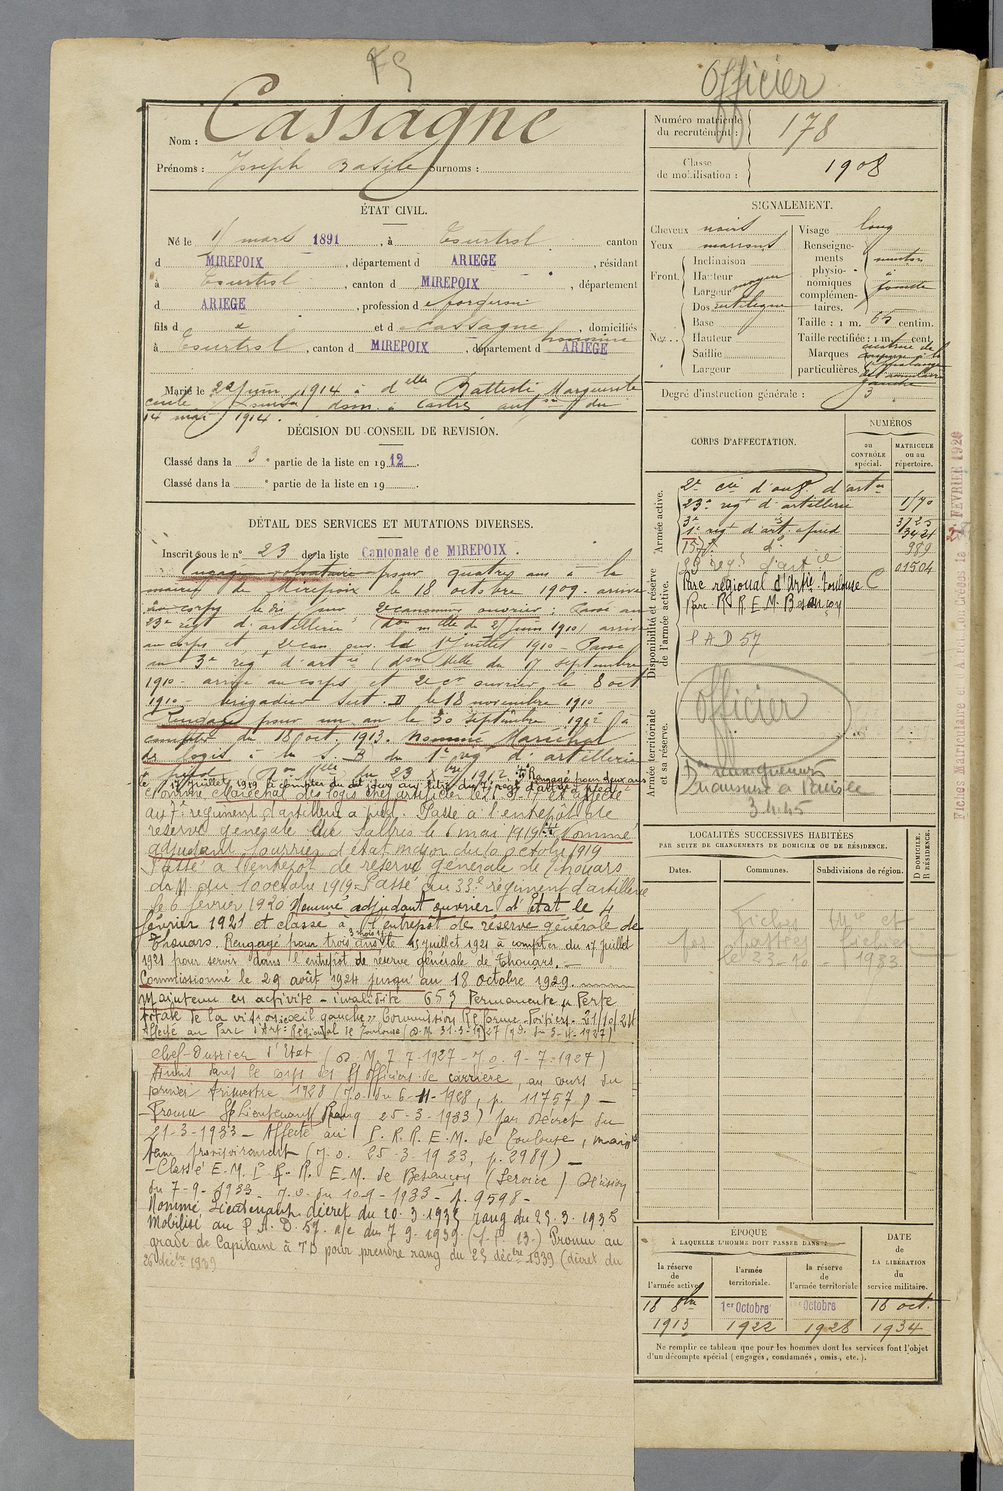 FS
Officier
Nom : Cassagne
Prénoms : Joseph Basile Surnoms :
Numéro matricule du recrutement : 178
Classe de mobilisation : 1908
ÉTAT CIVIL.
Né le 1 mars 1891, à Tourtrol canton
d MIREPOIX, département d ARIEGE, résidant
à Tourtrol, canton d MIREPOIX, département
d ARIEGE, profession de forgeron
fils d et de Cassagne, domiciliés
à Tourtrol, canton d MIREPOIX, département d ARIEGE
Marié le 22 juin 1914 à delle Battesti Marguerite
dom. à Castres aut du
14 mai 1914.
SIGNALEMENT.
Cheveux noirs
Yeux marrons
Front
Inclinaison
Hauteur moyen
Largeur
Nez
Dos rectiligne
Base
Hauteur
Saillie
Largeur
Visage long
Renseignements physionomiques complémentaires. menton à fossette
Taille : 1 m. 65 centim.
Taille rectifiée : 1 m. cent.
Marques particulières. cicatrice de
gauche
Degré d'instruction générale : 3
DÉCISION DU CONSEIL DE REVISION.
Classé dans la 3e partie de la liste en 1912
Classé dans la e partie de la liste en 19
DÉTAIL DES SERVICES ET MUTATIONS DIVERSES.
Inscrit sous le n° 23 de la liste Cantonale de MIREPOIX.
Engagé volontaire pour quatre ans à la
mairie de Mirepoix le 18 octobre 1909. arrivé
au corps le dit jour 2e canonnier ouvrier : Passé au
23e régt d'artillerie (don mlle du 2 juin 1910) arrivé
au corps et 2e can. serv. le 1er juillet 1910 - Passé
au 3e régt d'artie (don Mlle du 17 septembre
1910 - arrivé au corps et 2e cr ouvrier le 8 oct
1910. brigadier suit. D le 18 novembre 1910
Rengagé pour un an le 30 septembre 1912 à
compter du 18 oct. 1913. Nommé Maréchal
des logis du 1er rég d'artillerie
à pied Don Mlle du 23 Xbre 1912. Rengagé pour deux ans
le 17 juillet 1919 à compter du dit jour au titre du 7e régt d'artie à pied
Nommé Maréchal des logis chef artificier le et affecté
au 7e régiment d'artillerie à pied. Passé à l'entrepôt de
réserve générale de Salbris le 6 mai 1919. Nommé
adjudant ouvrier d'état major du 10 octobre 1919
Passé à l'entrepôt de réserve générale de Thouars
du 10 octobre 1919 - Passé au 33e régiment d'artillerie
le 6 février 1920 Nommé adjudant ouvrier d'Etat le 4
février 1921 et classé à l'entrepôt de réserve générale de
Thouars. Rengagé pour trois ans 3 mois le 15 juillet 1921 à compter du 17 juillet
1921 pour servir dans l'entrepôt de réserve générale de Thouars.
Commissionné le 29 août 1924 jusqu'au 18 octobre 1929.
Maintenu en activité - invalidité 65% Permanente Perte
totale de la vision œil gauche Commission Réforme Poitiers
Affecté au Parc d'Art. Régional de Toulouse (D.M. 31-3-1927 J.O. 3-4-1927)
Chef-Ouvrier d'Etat (D.M. 7.7.1927 - J.O. 9-7-1927)
Admis dans le corps des S/ officiers de carrière, au cours du
premier trimestre 1928 (J.O. du 6-11-1928, p. 11757) -
Promu S/Lieutenant (Rang 25-3-1933) par décret du
21-3-1933 - Affecté au P.R.R.E.M. de Toulouse, maintenu
provisoirement (J.O. 25-3-1933, p. 2989) -
- Classé E.M. P.R.R.E.M. de Besançon (Service) Décision
du 7-9-1933 - J.O. du 10-9-1933 - p. 9598 -
Nommé Lieutenant décret du 20.3.1935 rang du 25.3.1935
Mobilisé au P.A.D. 57. a/c du 7.9.1939 Promu au
grade de Capitaine à TD pour prendre rang du 25 décbre 1939 (décret du
26 décbre 1939
CORPS D'AFFECTATION.
NUMÉROS
au CONTRÔLE spécial.
MATRICULE ou au répertoire.
Armée active.
2e Cie d'ouv. d'artie
23e régt d'artillerie 1170
3e 3725
1e régt d'art. à pied 3421
157e d° 989
28 régt d'artie 01504
Disponibilité et réserve de l'armée active.
Parc régional d'Artie Toulouse C
Parc R.R.E.M. Besançon
P A D 57
Officier
Armée territoriale et sa réserve.
3.4.45
LOCALITÉS SUCCESSIVES HABITÉES
PAR SUITE DE CHANGEMENTS DE DOMICILE OU DE RÉSIDENCE.
Dates.
Communes.
Subdivisions de région.
D DOMICILE. R RÉSIDENCE.
Fiches Mle et
passées
le 23-10-1933
ÉPOQUE
À LAQUELLE L'HOMME DOIT PASSER DANS :
la réserve de l'armée active
l'armée territoriale.
la réserve de l'armée territoriale
DATE de LA LIBÉRATION du service militaire.
18 8bre 1913
1er Octobre 1922
Octobre 1928
18 oct. 1934
Ne remplir ce tableau que pour les hommes dont les services font l'objet
d'un décompte spécial (engagés, condamnés, omis, etc.).
Fiches Matriculaire et Créées le 2 FEVRIER 1929